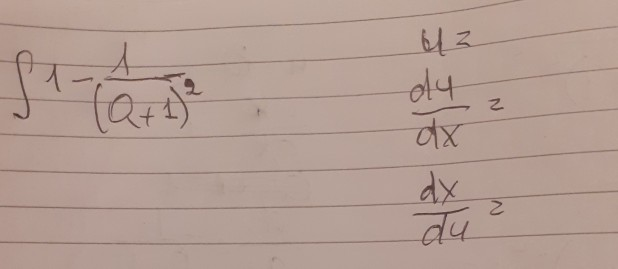 ∫ 1 - 1/(Q+1)²
u =
du/dx =
dx/du =